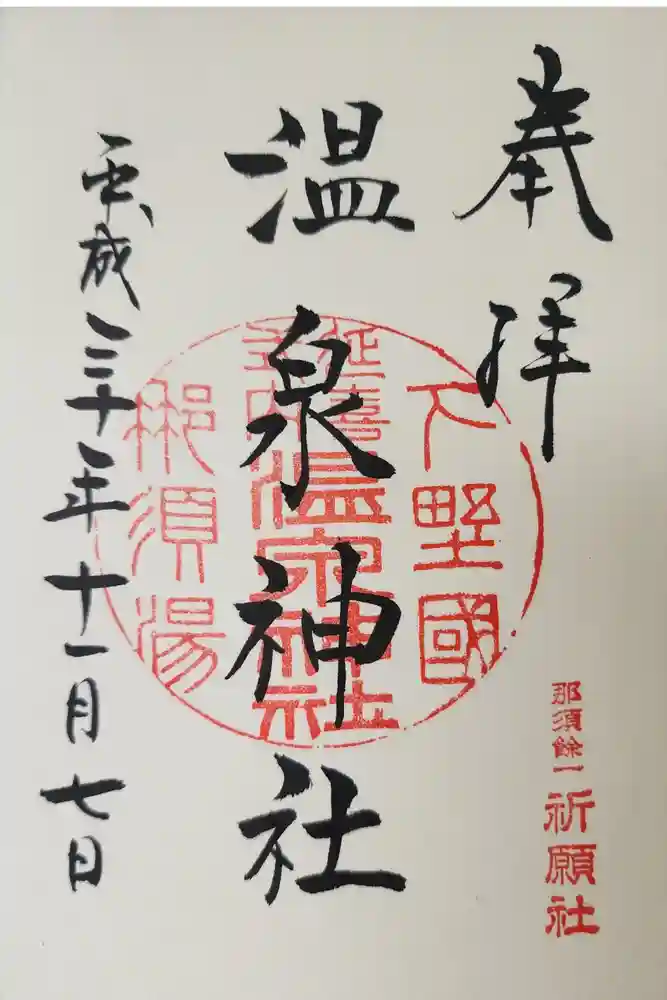 奉拝
那須餘一祈願社
下野國
延喜
式内
温泉神社
那須湯
温泉神社
平成三十年十一月七日